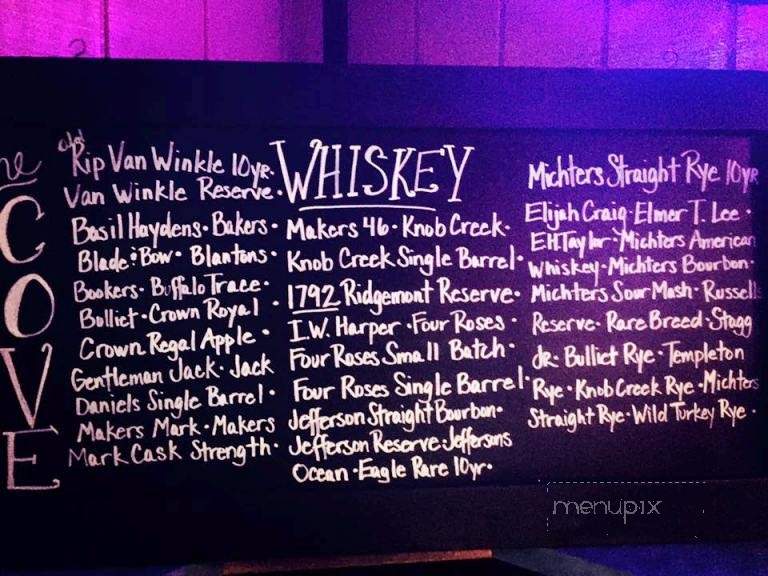 The
COVE
WHISKEY
old
Rip Van Winkle 10yr·
Van Winkle Reserve·
Basil Haydens· Bakers·
Blade & Bow· Blantons·
Bookers· Buffalo Trace·
Bulliet· Crown Royal·
Crown Regal Apple·
Gentleman Jack· Jack
Daniels Single Barrel·
Makers Mark· Makers
Mark Cask Strength·
Makers 46· Knob Creek·
Knob Creek Single Barrel·
1792 Ridgemont Reserve·
I.W. Harper· Four Roses·
Four Roses Small Batch·
Four Roses Single Barrel·
Jefferson Straight Bourbon·
Jefferson Reserve· Jeffersons
Ocean· Eagle Rare 10yr·
Michters Straight Rye 10yr
Elijah Craig· Elmer T. Lee·
EH Taylor· Michters American
Whiskey· Michters Bourbon·
Michters Sour Mash· Russells
Reserve· Rare Breed· Stagg
Jr.· Bulliet Rye· Templeton
Rye· Knob Creek Rye· Michters
Straight Rye· Wild Turkey Rye·
menupix